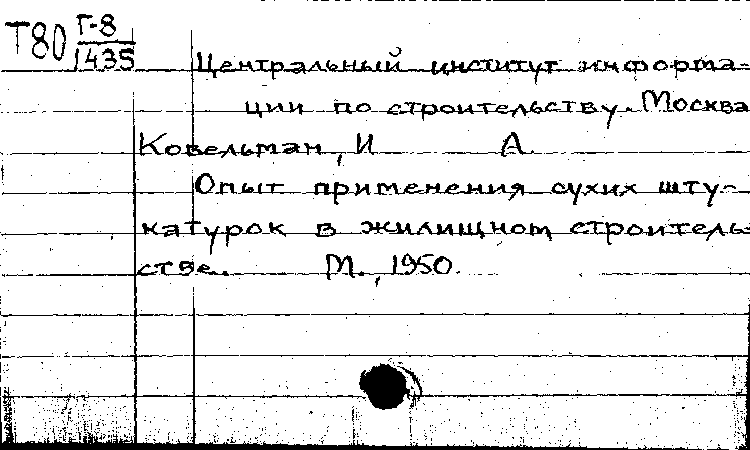 Т80 Г-8
1435
Центральный институт информа-
ции по строительству. Москва
Ковельман, И А.
Опыт применения сухих шту-
катурок в жилищном строитель-
стве. М., 1950.